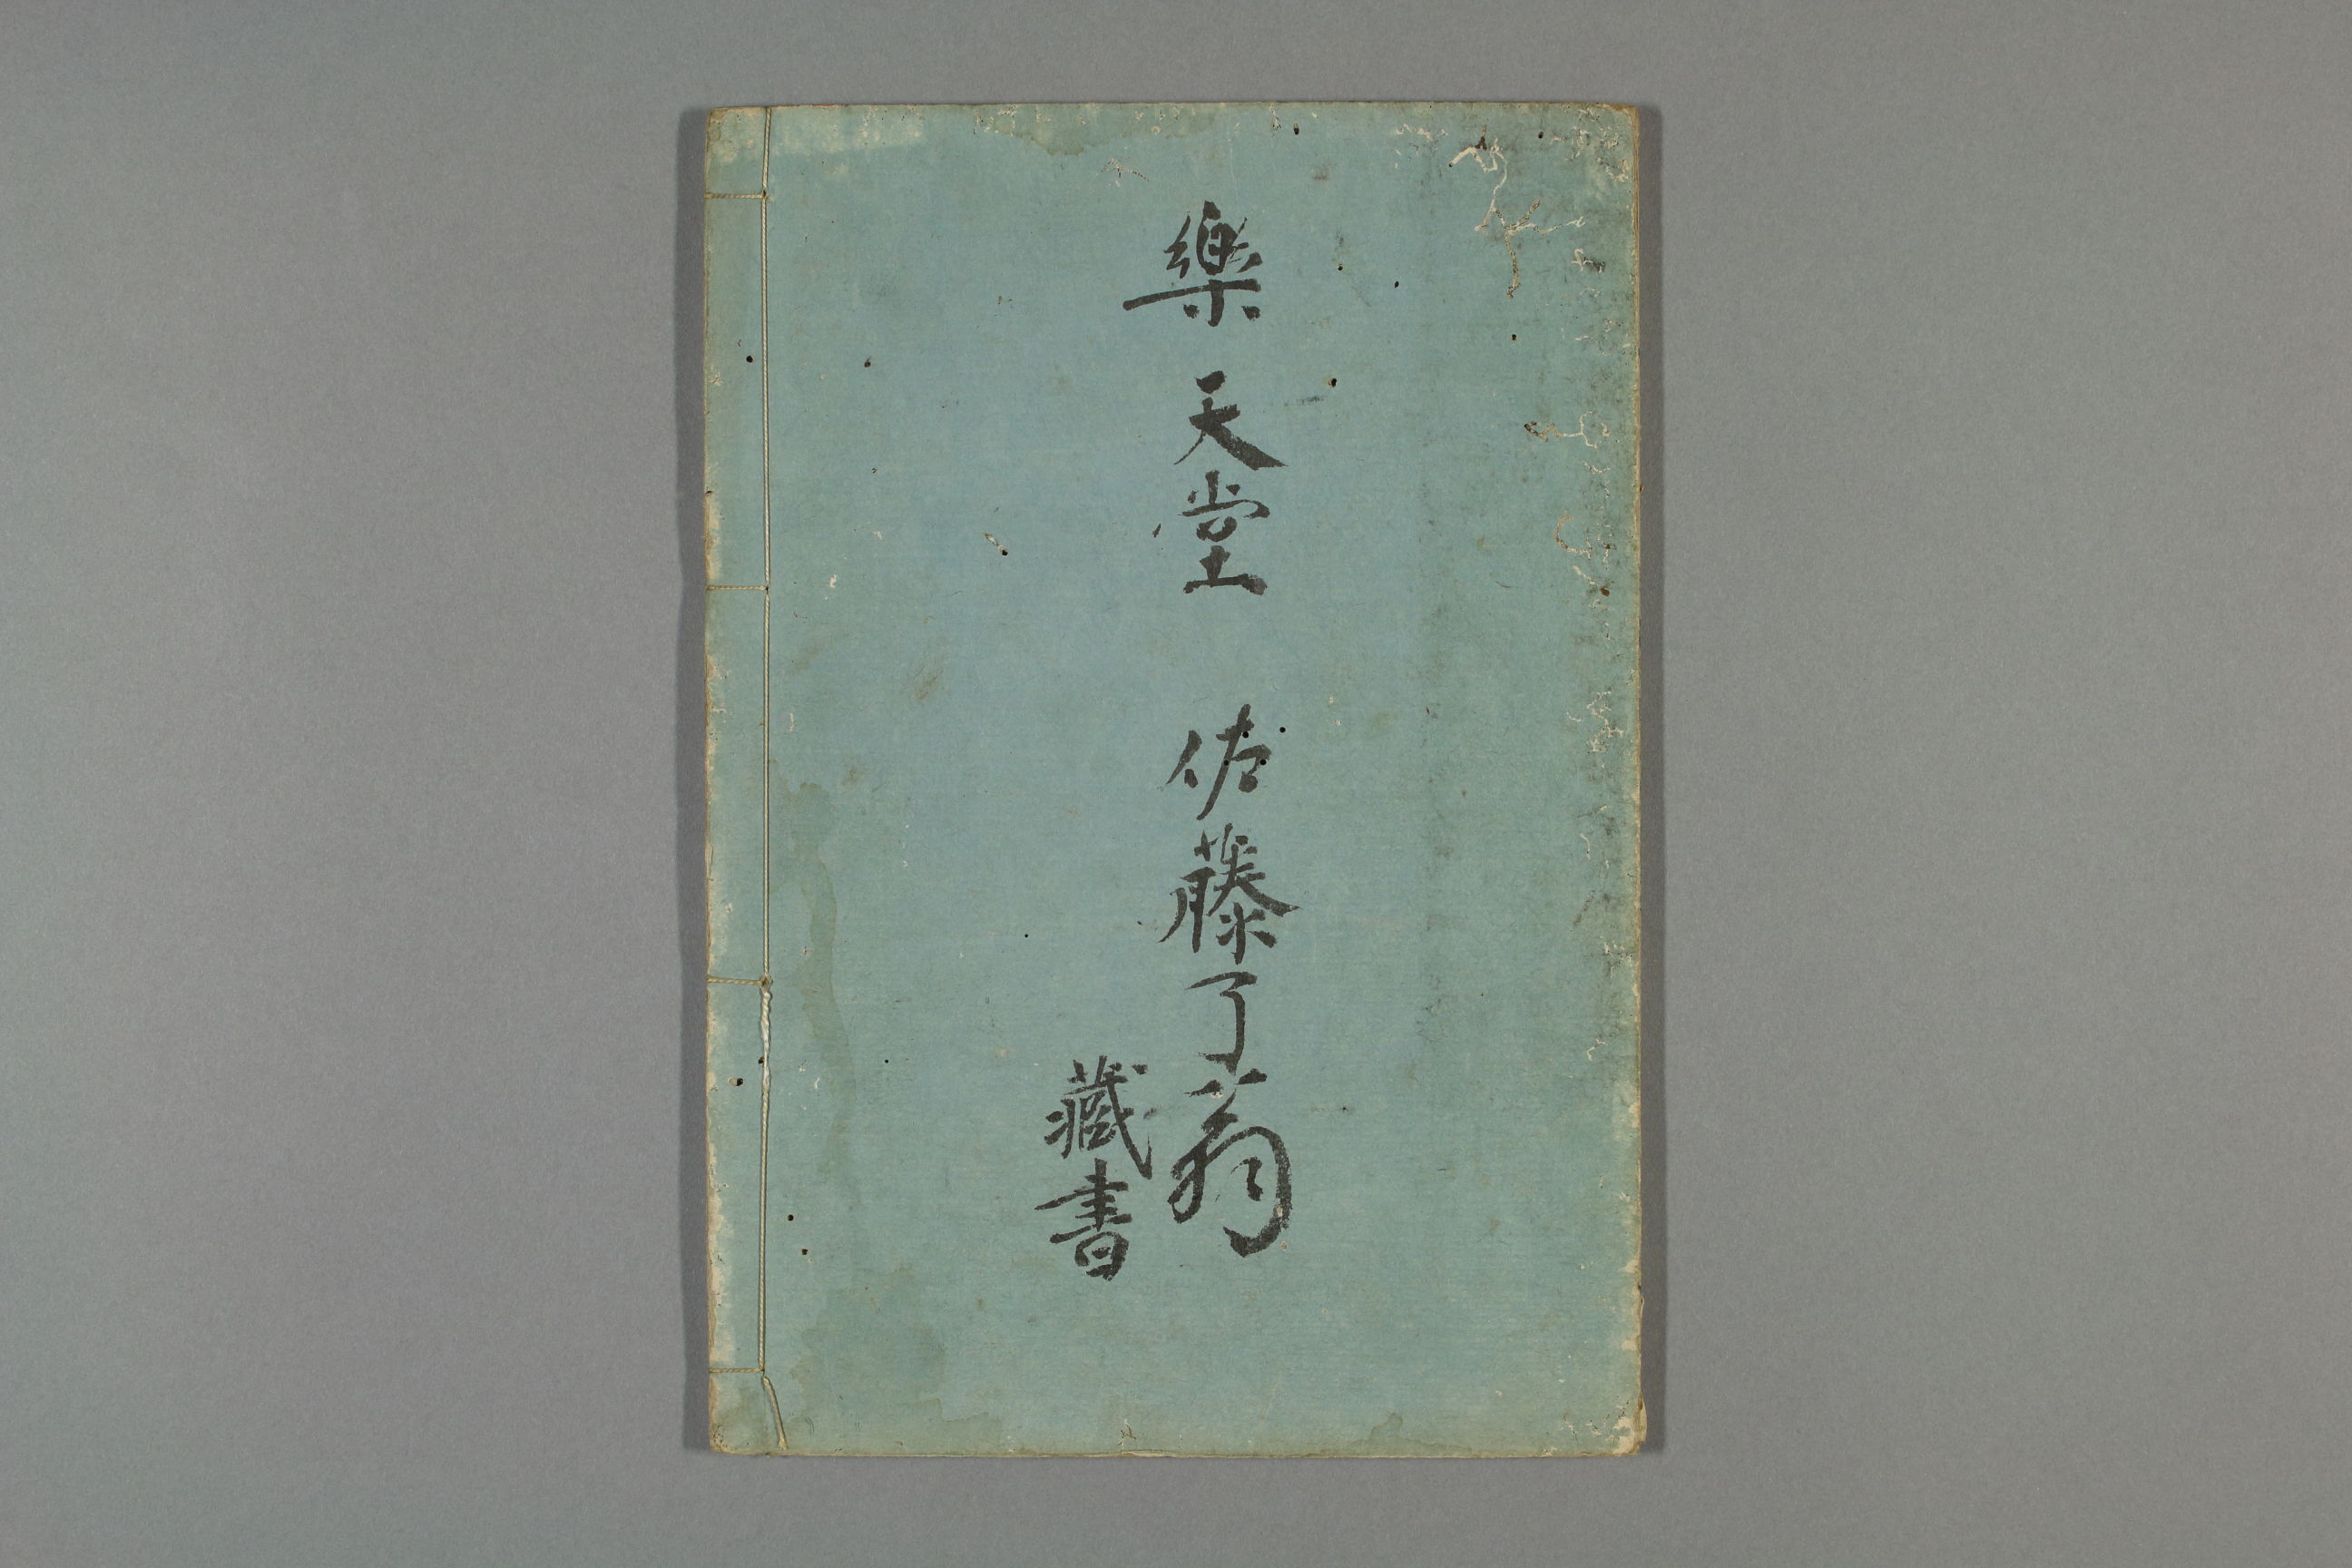 樂天堂 佐藤了翁
藏書